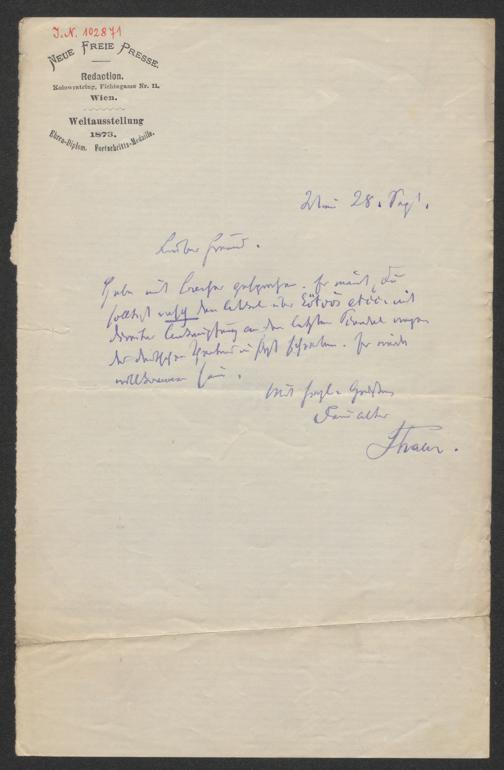 J.N. 102871
NEUE FREIE PRESSE.
Redaction.
Kolowratring, Fichtegasse Nr. 11.
Wien.
Weltausstellung
1873.
Ehren-Diplom. Fortschritts-Medaille.
Wien 28. Sept.
Lieber Freund.
Habe mit gesprochen. Er meint, Du
solltest rasch den Artikel über Eötvös etc. mit
direkter Anknüpfung an den letzten Skandal wegen
der deutschen Theater in Pest schreiben. Er würde
willkommen sein.
Mit herzl. Grüßen
Dein alter